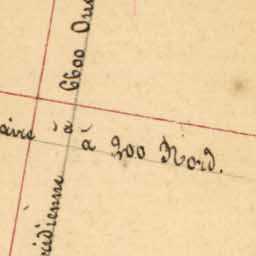 6600 Oues
aire à
à 200 Nord.
ridienne